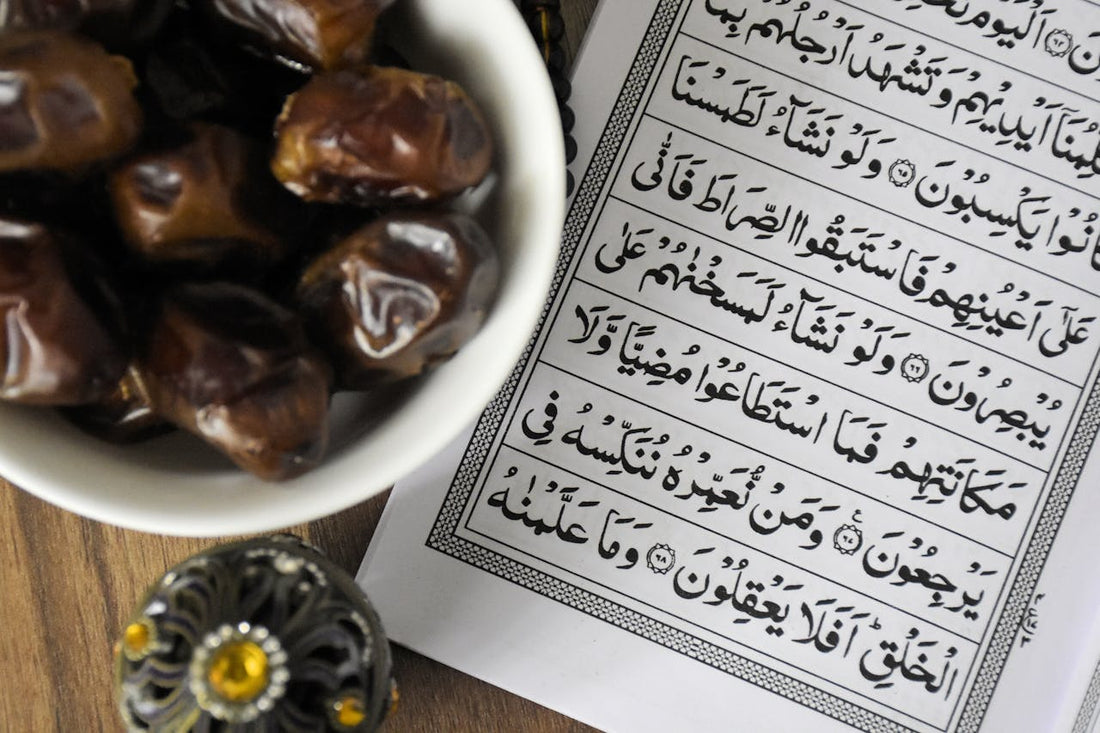 اَلْيَوْمَ
اَيْدِيْهِمْ وَ تَشْهَدُ اَرْجُلُهُمْ بِمَا
كَانُوْا يَكْسِبُوْنَ ۝٦٥ وَلَوْ نَشَآءُ لَطَمَسْنَا
عَلٰٓى اَعْيُنِهِمْ فَاسْتَبَقُوا الصِّرَاطَ فَاَنّٰى
يُبْصِرُوْنَ ۝٦٦ وَلَوْ نَشَآءُ لَمَسَخْنٰهُمْ عَلٰى
مَكَانَتِهِمْ فَمَا اسْتَطَاعُوْا مُضِيًّا وَّلَا
يَرْجِعُوْنَ ۝٦٧ وَمَنْ نُّعَمِّرْهُ نُنَكِّسْهُ فِى
الْخَلْقِ ؕ اَفَلَا يَعْقِلُوْنَ ۝٦٨ وَمَا عَلَّمْنٰهُ